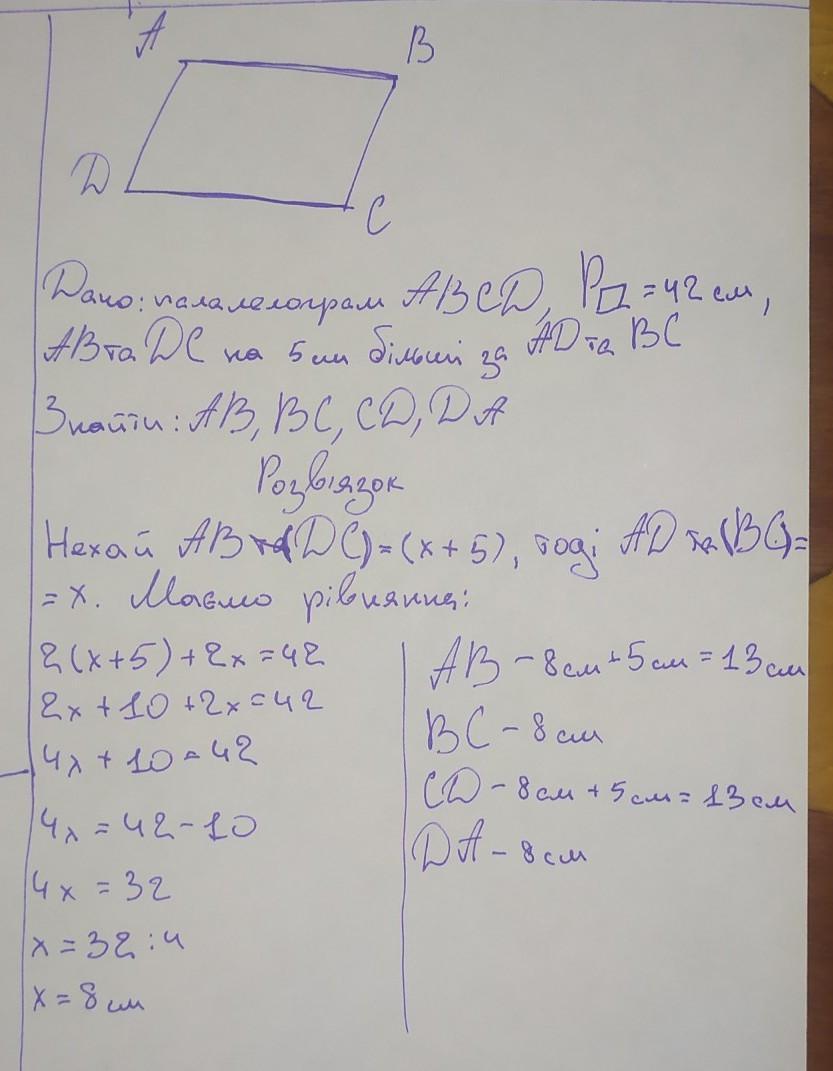 A
B
D
C
Дано: паралелограм ABCD, P▱ = 42 см,
AB та DC на 5см більші за AD та BC
Знайти: AB, BC, CD, DA
Розв'язок
Нехай AB та (DC) = (x + 5), тоді AD та (BC) =
= x. Маємо рівняння:
2(x+5) + 2x = 42
2x + 10 + 2x = 42
4x + 10 = 42
4x = 42 - 10
4x = 32
x = 32 : 4
x = 8 см
AB - 8см + 5см = 13см
BC - 8 см
CD - 8см + 5см = 13см
DA - 8см